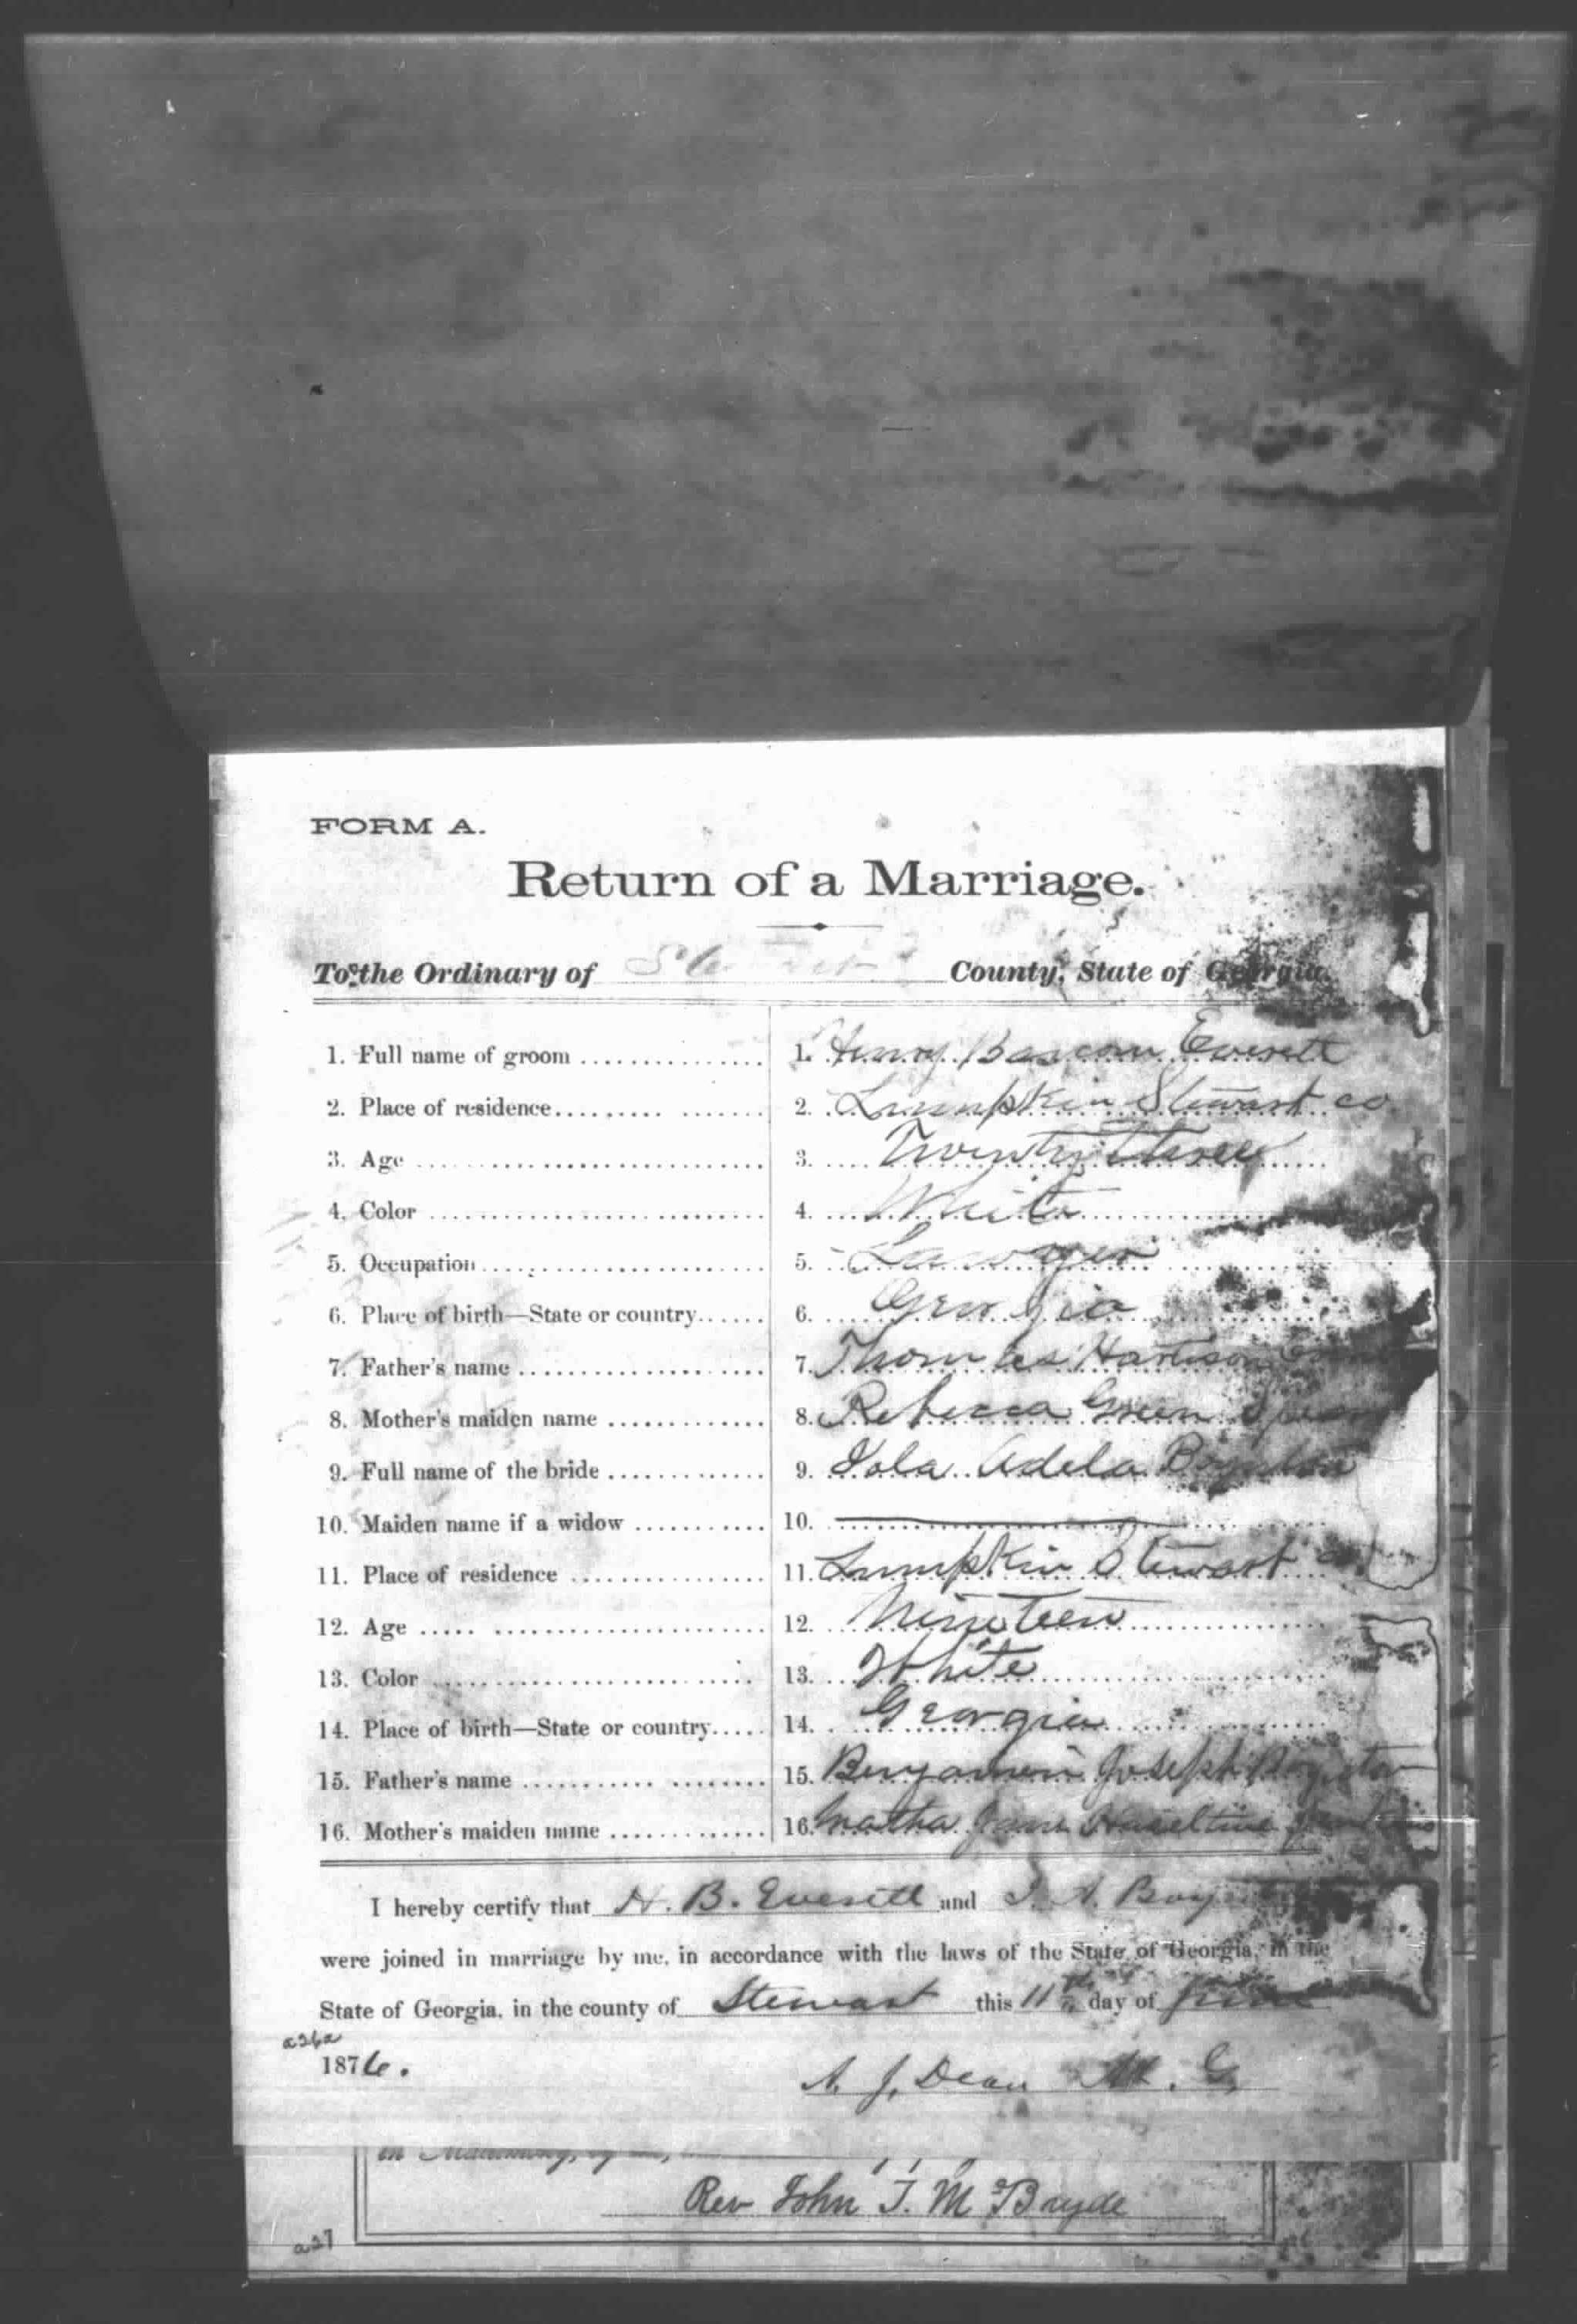 FORM A.
Return of a Marriage.
To the Ordinary of Stewart County, State of Georgia.
1. Full name of groom 1. Henry Bascom Everett
2. Place of residence 2. Lumpkin Stewart co
3. Age 3. Twenty three
4. Color 4. White
5. Occupation 5. Lawyer
6. Place of birth—State or country 6. Georgia
7. Father's name 7. Thomas Harrison
8. Mother's maiden name 8. Rebecca Green
9. Full name of the bride 9. Iola Adela Boynton
10. Maiden name if a widow 10.
11. Place of residence 11. Lumpkin Stewart co
12. Age 12. Nineteen
13. Color 13. White
14. Place of birth—State or country 14. Georgia
15. Father's name 15. Benjamin Joseph Boynton
16. Mother's maiden name 16. Matha Jane Haseltine
I hereby certify that H. B. Everett and I. A. Boy
were joined in marriage by me, in accordance with the laws of the State of Georgia, in the
State of Georgia, in the county of Stewart this 11th day of June
a26a
1876.
A. J. Dean M. G.
Rev John T. McBryde
a27